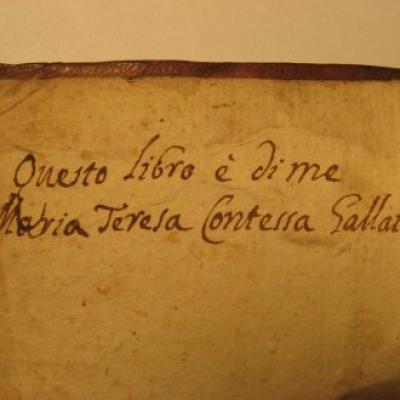 Questo libro è di me
Maria Teresa Contessa